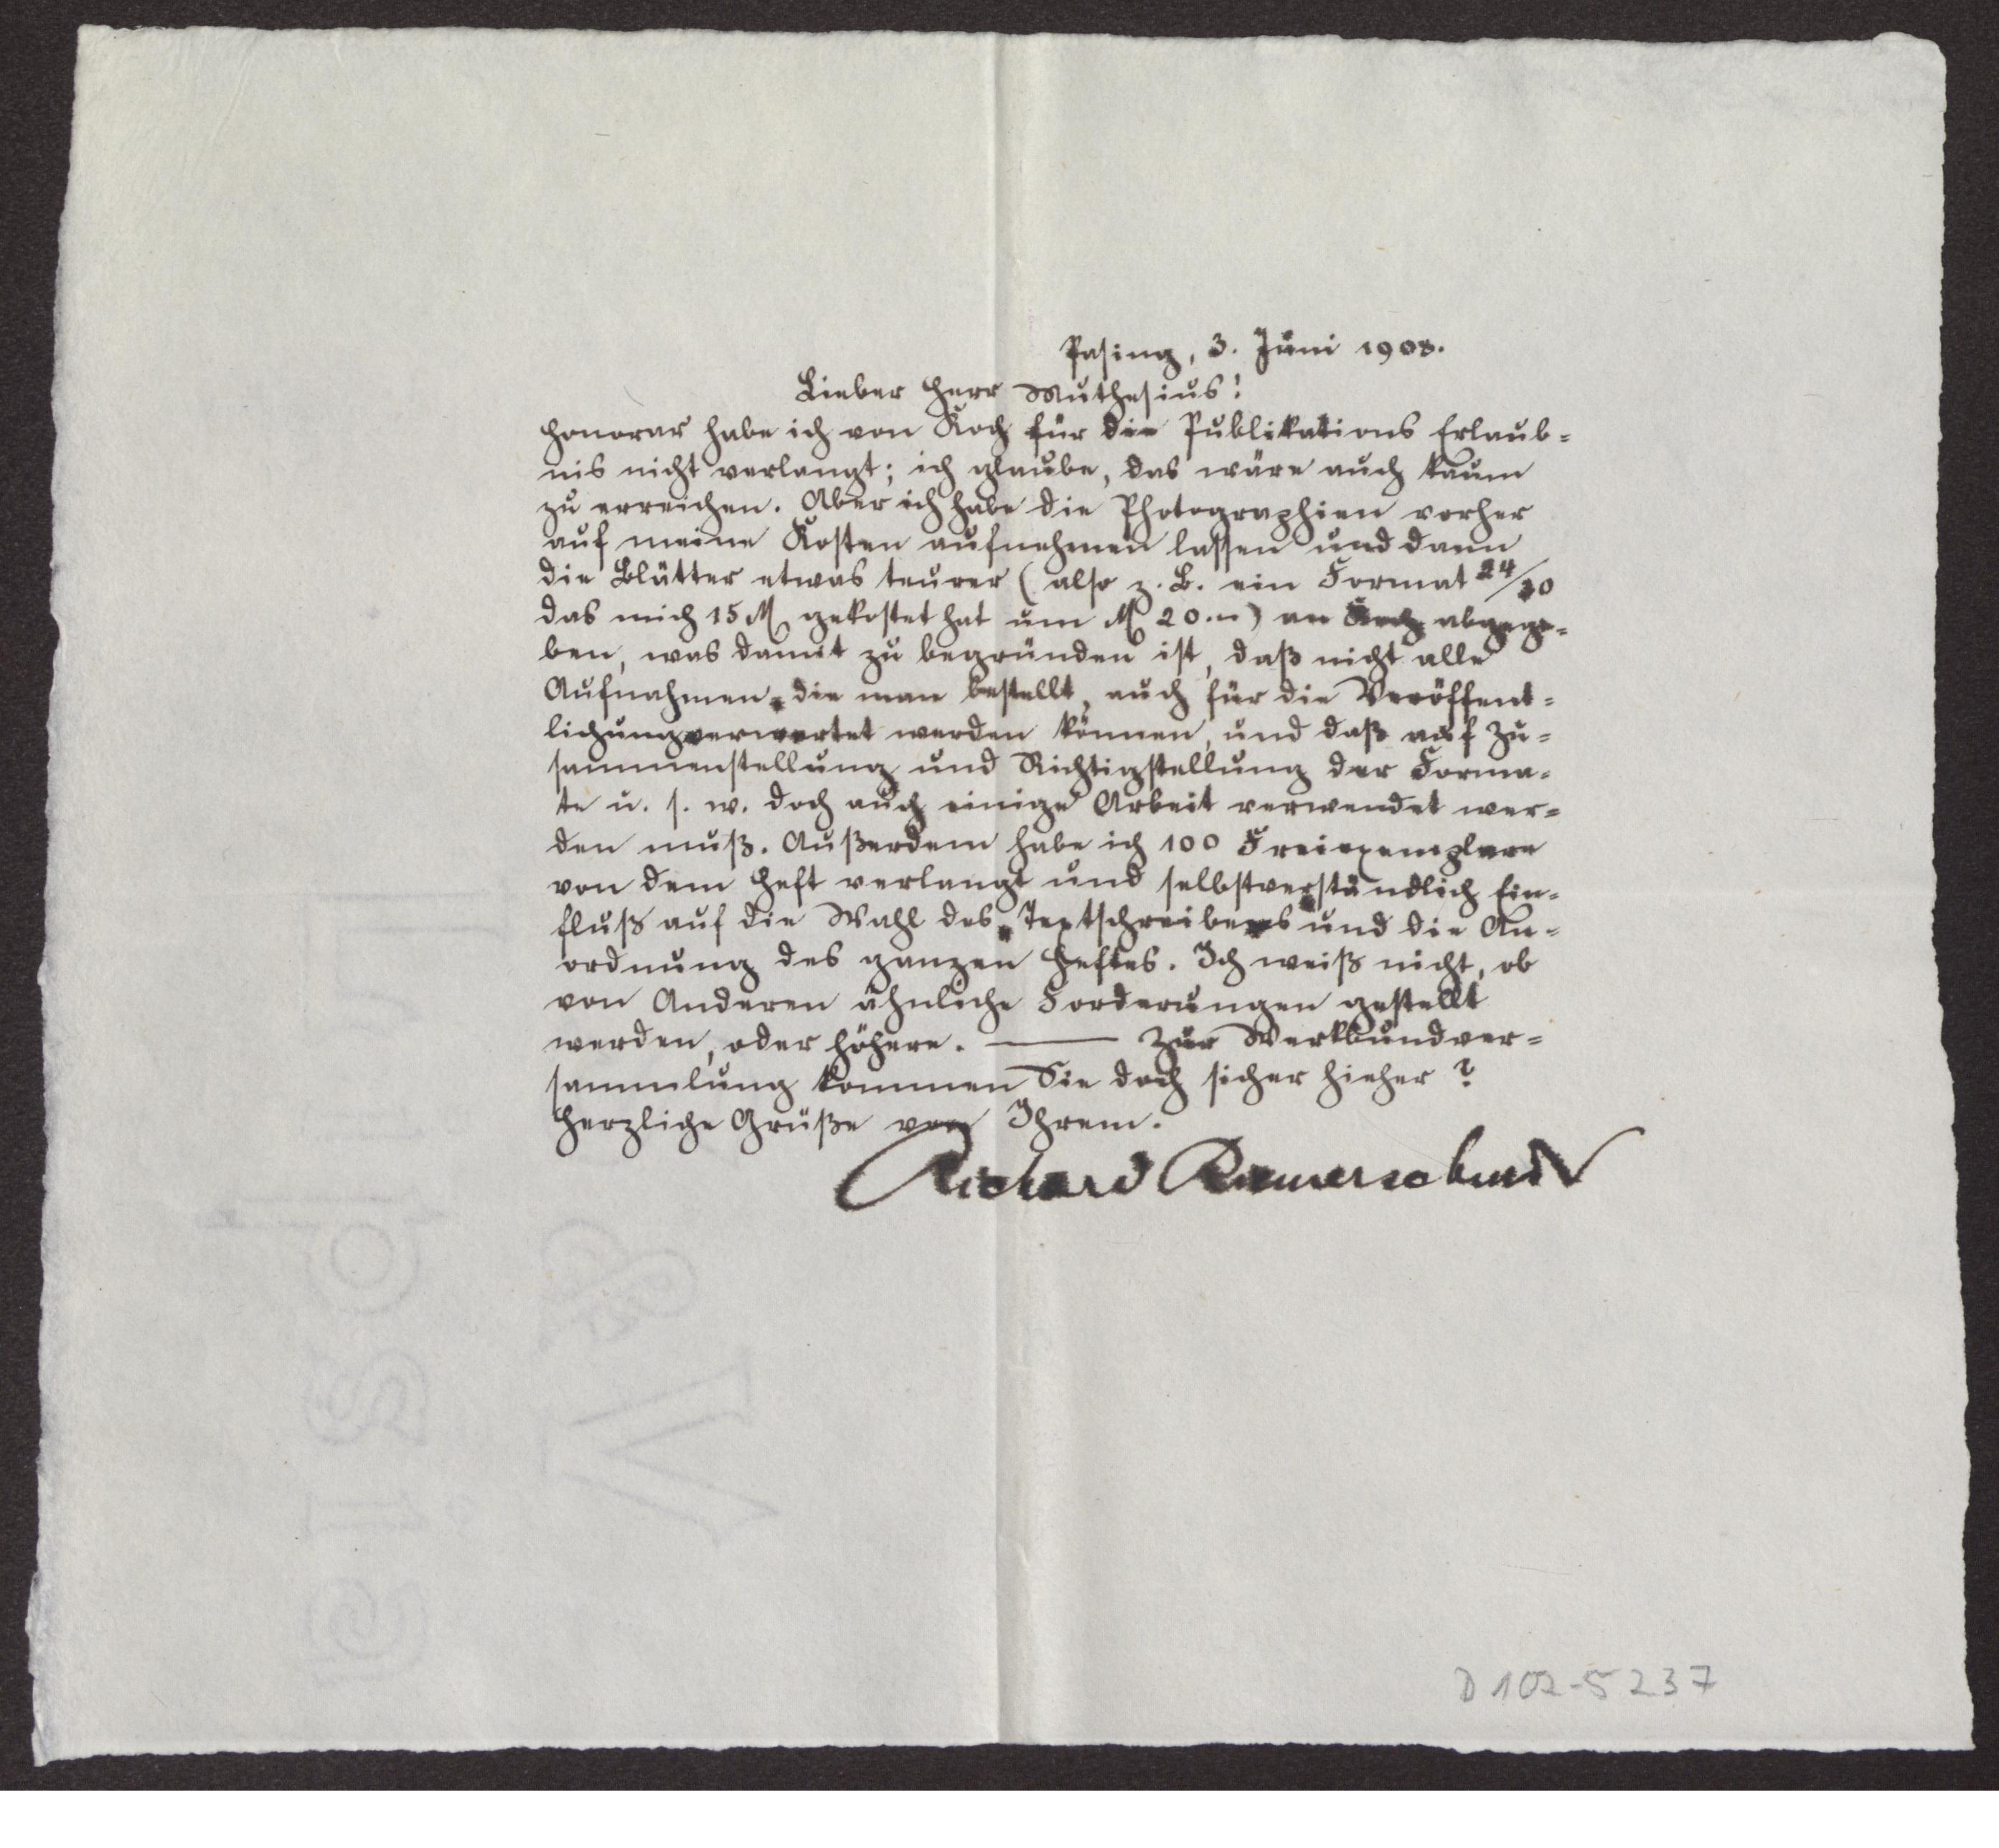 Pasing, 3. Juni 1908.
Lieber Herr Muthesius!
Honorar habe ich von Koch für die Publikations Erlaub=
nis nicht verlangt; ich glaube, das wäre auch kaum
zu erreichen. Aber ich habe die Photographien vorher
auf meine Kosten aufnehmen lassen und dann
die Blätter etwas teurer (also z. B. ein Format 24/30
das mich 15 M gekostet hat um M 20.–) an Koch abgege=
ben, was damit zu begründen ist, daß nicht alle
Aufnahmen, die man bestellt, auch für die Veröffent=
lichung verwertet werden können, und daß auf Zu=
sammenstellung und Richtigstellung der Forma=
te u. s. w. doch auch einige Arbeit verwendet wer=
den muß. Außerdem habe ich 100 Freiexemplare
von dem Heft verlangt und selbstverständlich Ein=
fluß auf die Wahl des Textschreibers und die An=
ordnung des ganzen Heftes. Ich weiß nicht, ob
von Anderen ähnliche Forderungen gestellt
werden, oder höhere. — Zur Werkbundver=
sammlung kommen Sie doch sicher hieher?
Herzliche Grüße von Ihrem.
Richard Riemerschmid
D 102-5237